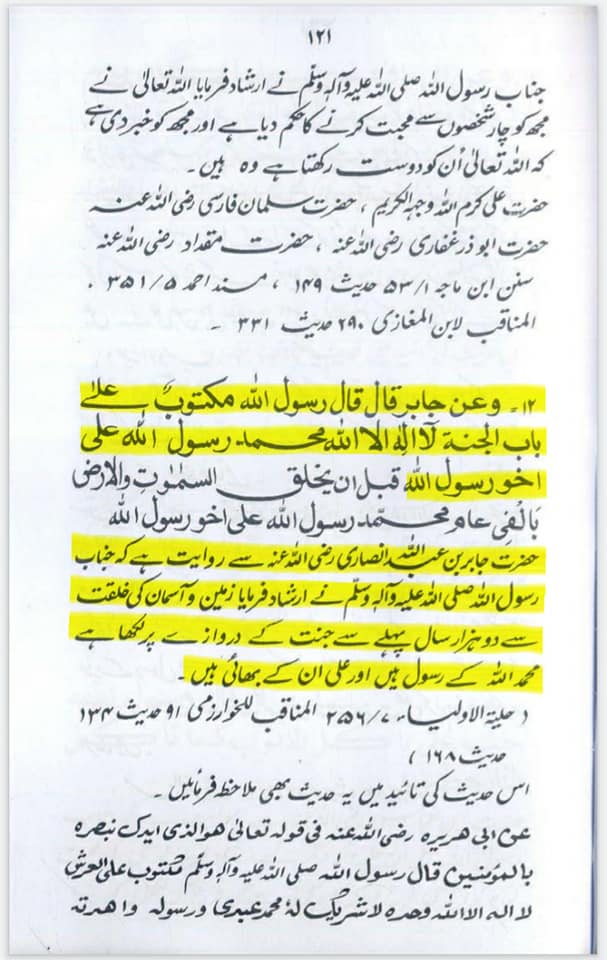 ۱۲۱
جناب رسول اللہ صلی اللہ علیہ وآلہ وسلم نے ارشاد فرمایا اللہ تعالیٰ نے
مجھ کو چار شخصوں سے محبت کرنے کا حکم دیا ہے اور مجھ کو خبر دی ہے
کہ اللہ تعالیٰ اُن کو دوست رکھتا ہے وہ ہیں ۔
حضرت علی کرم اللہ وجہہ الکریم ، حضرت سلمان فارسی رضی اللہ عنہ
حضرت ابوذر غفاری رضی اللہ عنہ ، حضرت مقداد رضی اللہ عنہ
سنن ابن ماجہ ۵۳/۱ حدیث ۱۴۹ ، مسند احمد ۳۵۱/۵ ۔
المناقب لابن المغازی ۲۹۰ حدیث ۳۳۱ ۔
۱۲۔ وعن جابر قال قال رسول اللہ مکتوبٌ علےٰ
باب الجنۃ لآ اِلٰہ الا اللہ محمد رسول اللہ علی
اخو رسول اللہ قبل ان یخلق السمٰوٰتِ والارض
بالفی عام محمّد رسول اللہ علی اخو رسول اللہ
حضرت جابر بن عبداللہ انصاری رضی اللہ عنہ سے روایت ہے کہ جناب
رسول اللہ صلی اللہ علیہ وآلہ وسلم نے ارشاد فرمایا زمین و آسمان کی خلقت
سے دو ہزار سال پہلے سے جنت کے دروازے پر لکھا ہے
محمد اللہ کے رسول ہیں اور علی ان کے بھائی ہیں ۔
( حلیۃ الاولیاء ۲۵۶/۷ المناقب للخوارزمی ۹۱ حدیث ۱۳۴
حدیث ۱۶۸ )
اس حدیث کی تائید میں یہ حدیث بھی ملاحظہ فرمائیں ۔
عن ابی ھریرہ رضی اللہ عنہ فی قولہ تعالیٰ ھوالذی ایدک بنصرہ
بالمؤمنین قال رسول اللہ صلی اللہ علیہ وآلہ وسلم مکتوب علی العرش
لا الہ الا اللہ وحدہ لا شریک لہٗ محمد عبدی ورسولہ وا ھدتہ